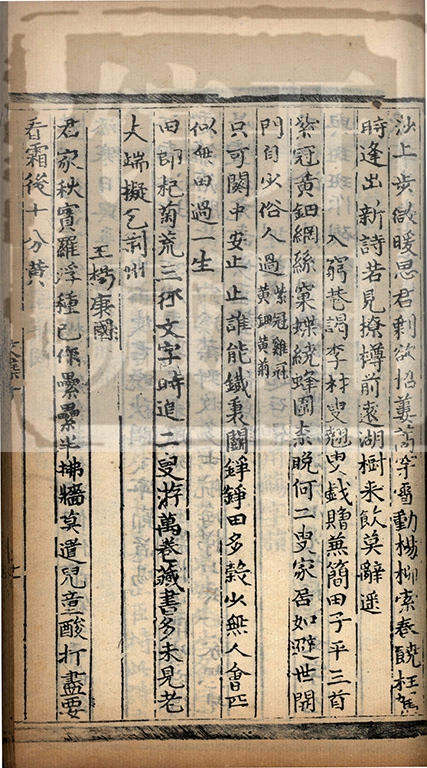 沙上步微暖思君剩欲招蔞蒿穿雪動楊柳索春饒枉駕
時逢出新詩若見撩樽前遠湖樹来飲莫辭遥
入窮巷謁李材叟翹叟戱贈兼簡田子平三首
紫冠黄鈿網絲窠蝶繞蜂圍柰晚何二叟家居如避世開
門自少俗人過
紫冠雞冠
黄鈿黄菊
只可閑中安止止誰能鐵裏鬭錚錚田多穀少無人會匹
似無田過一生
田郎杞菊荒三徑文字時追二叟游萬卷藏書多未見老
夫端擬乞荆州
王楊康國
君家秋實羅浮種已作纍纍半拂牆莫遣兒童酸打盡要
看霜後十分黄